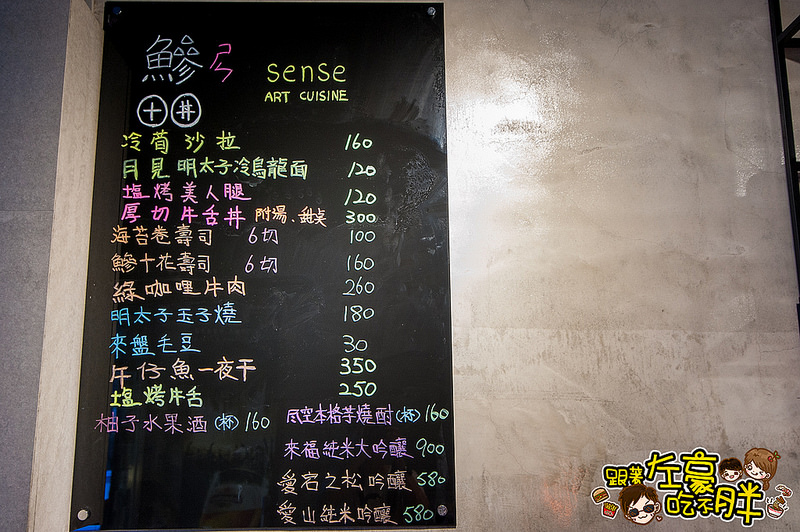 鰺ㄢ sense
ART CUISINE
十丼
冷荀沙拉 160
月見明太子冷烏龍面 120
塩烤美人腿 120
厚切牛舌丼 附湯、甜桌 300
海苔卷壽司 6切 100
鰺十花壽司 6切 160
綠咖哩牛肉 260
明太子玉子燒 180
來盤毛豆 30
午仔魚一夜干 350
塩烤牛舌 250
柚子水果酒(杯)160
風空本格芋燒酎(杯)160
來福純米大吟釀 900
愛宕之松吟釀 580
愛山純米吟釀 580
跟著左豪吃不胖